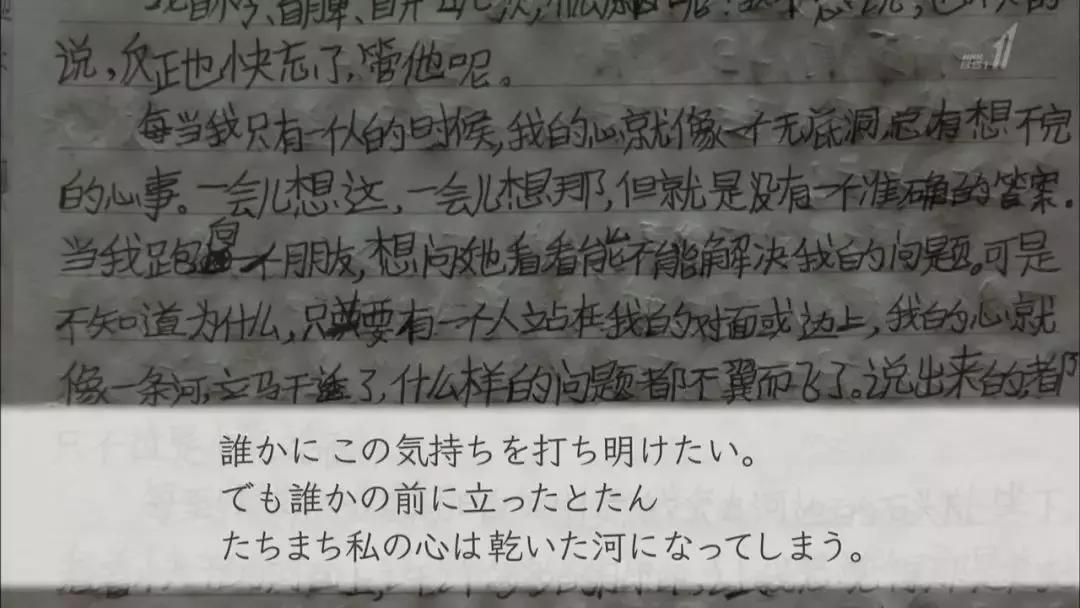 说,反正也快忘了,管他呢。
每当我只有一个人的时候,我的心就像一个无底洞,总有想不完
的心事。一会儿想这,一会儿想那,但就是没有一个准确的答案.
当我跑向一个朋友,想问她看看能不能解决我的问题。可是
不知道为什么,只要有一个人立占在我的对面或边上,我的心就
像一条河,立马干涸了,什么样的问题都不翼而飞了。说出来的都
誰かに この気持ちを打ち明けたい。
でも誰かの前に立ったとたん
たちまち私の心は乾いた河になってしまう。
NHK BS1